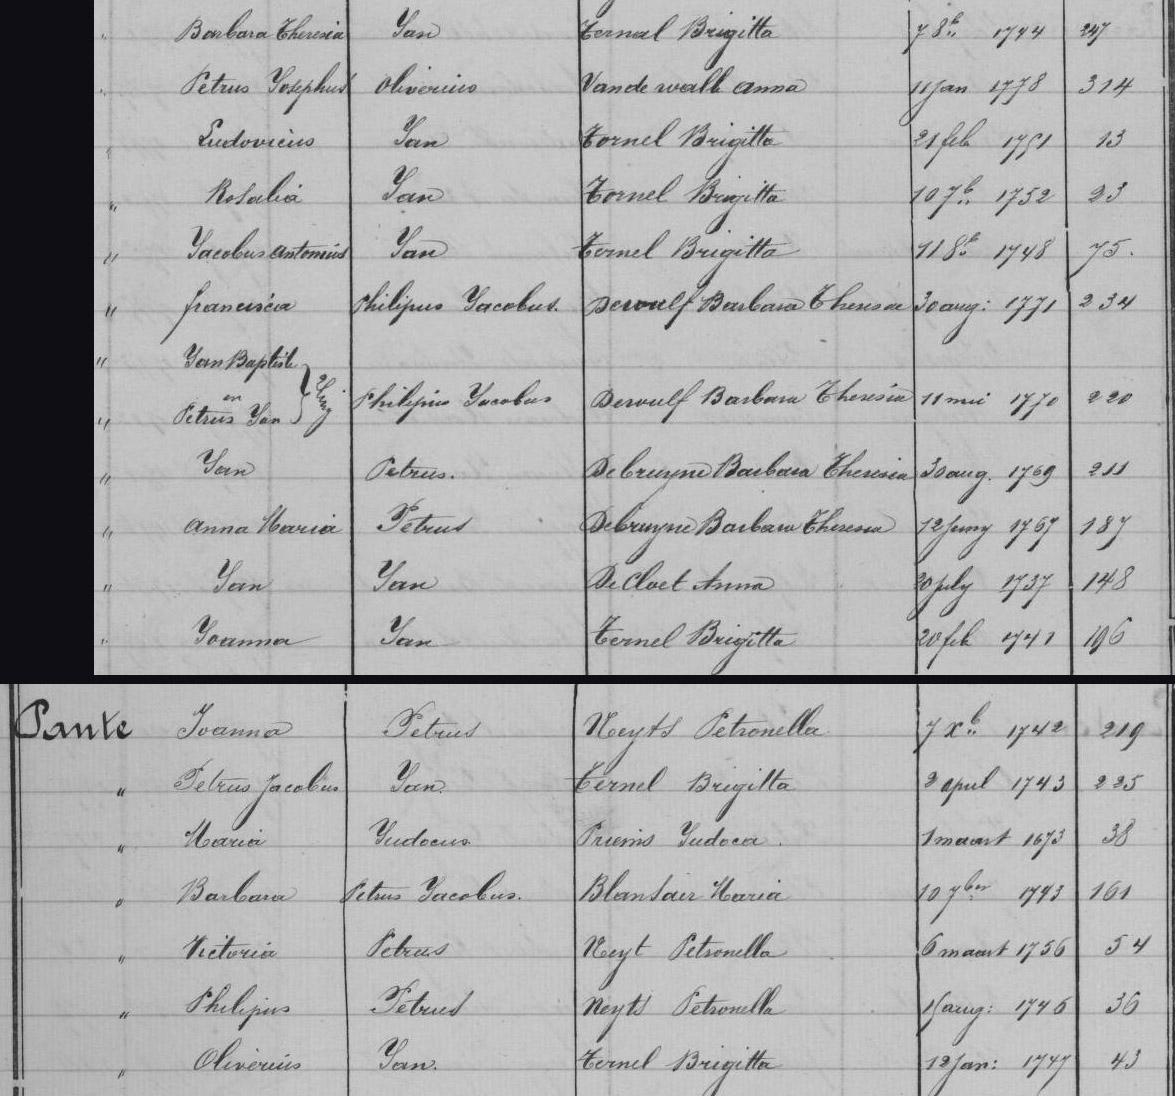 " Barbara Theresia Jan Ternel Brigitta 7 8b. 1744 247
" Petrus Josephus Oliverius Vande walle Anna 11 Jan 1778 314
" Ludovicus Jan Tornel Brigitta 21 feb 1751 13
" Rosalia Jan Tornel Brigitta 10 7b. 1752 23
" Jacobus Antonius Jan Ternel Brigitta 11 8b. 1748 75.
" francisca Philipus Jacobus. Dewulf Barbara Theresia 30 aug: 1771 234
" Jan Baptiste
en Philipus Jacobus Dewulf Barbara Theresia 11 mei 1770 220
" Petrus Jan
" Jan Petrus. De bruyne Barbara Theresia 30 aug. 1769 211
" Anna Maria Petrus Debruyne Barbara Theresia 12 Juny 1767 187
" Jan Jan De Cloet Anna 20 july 1737 148
" Joanna Jan Ternel Brigitta 20 feb 1741 196
Pante Joanna Petrus Neyts Petronella 7 Xb. 1742 219
" Petrus Jacobus Jan. Ternel Brigitta 2 april 1743 225
" Maria Judocus Priems Judoca. 1 maart 1673 38
" Barbara Petrus Jacobus. Blansaer Maria 10 7ber 1743 161
" Victoria Petrus Neyt Petronella 6 maart 1756 54
" Philipus Petrus Neyts Petronella 15 aug: 1746 36
" Oliverius Jan. Ternel Brigitta 12 Jan: 1747 43